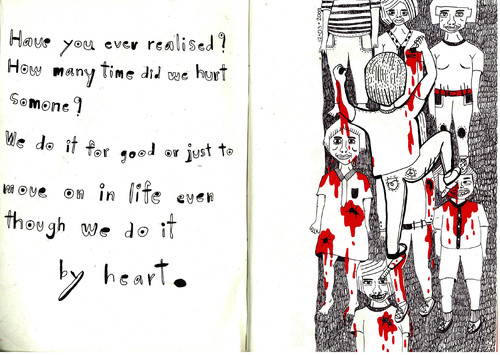 Have you ever realised?
How many time did we hurt
Somone?
We do it for good or just to
move on in life even
though we do it
by heart.